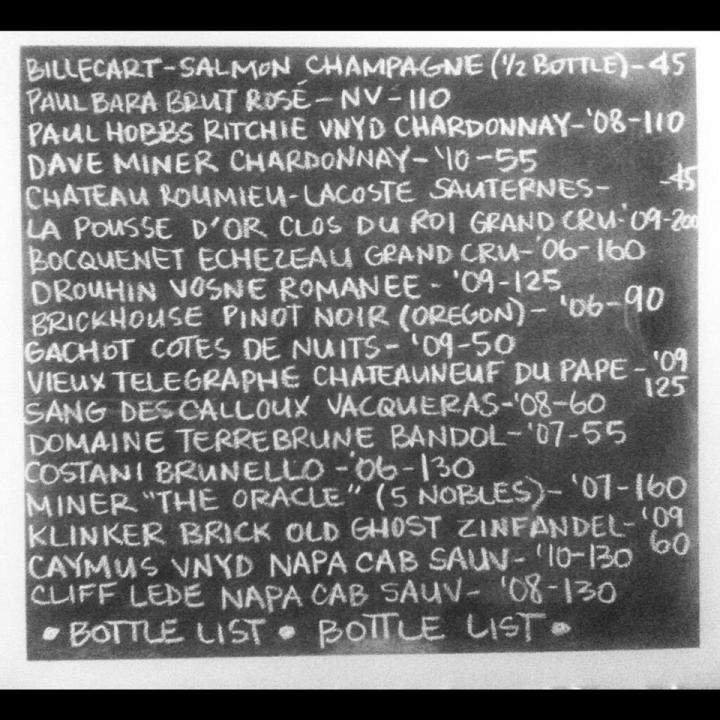 BILLECART-SALMON CHAMPAGNE (1/2 BOTTLE)-45
PAUL BARA BRUT ROSÉ-NV-110
PAUL HOBBS RITCHIE VNYD CHARDONNAY-'08-110
DAVE MINER CHARDONNAY-'10-55
CHATEAU ROUMIEU-LACOSTE SAUTERNES- -45
LA POUSSE D'OR CLOS DU ROI GRAND CRU-'09-200
BOCQUENET ECHEZEAU GRAND CRU-'06-160
DROUHIN VOSNE ROMANEE-'09-125
BRICKHOUSE PINOT NOIR (OREGON)-'06-90
GACHOT COTES DE NUITS-'09-50
VIEUX TELEGRAPHE CHATEAUNEUF DU PAPE-'09
125
SANG DES CALLOUX VACQUERAS-'08-60
DOMAINE TERREBRUNE BANDOL-'07-55
COSTANI BRUNELLO-'06-130
MINER "THE ORACLE" (5 NOBLES)-'07-160
KLINKER BRICK OLD GHOST ZINFANDEL-'09
60
CAYMUS VNYD NAPA CAB SAUV-'10-130
CLIFF LEDE NAPA CAB SAUV-'08-130
• BOTTLE LIST • BOTTLE LIST •